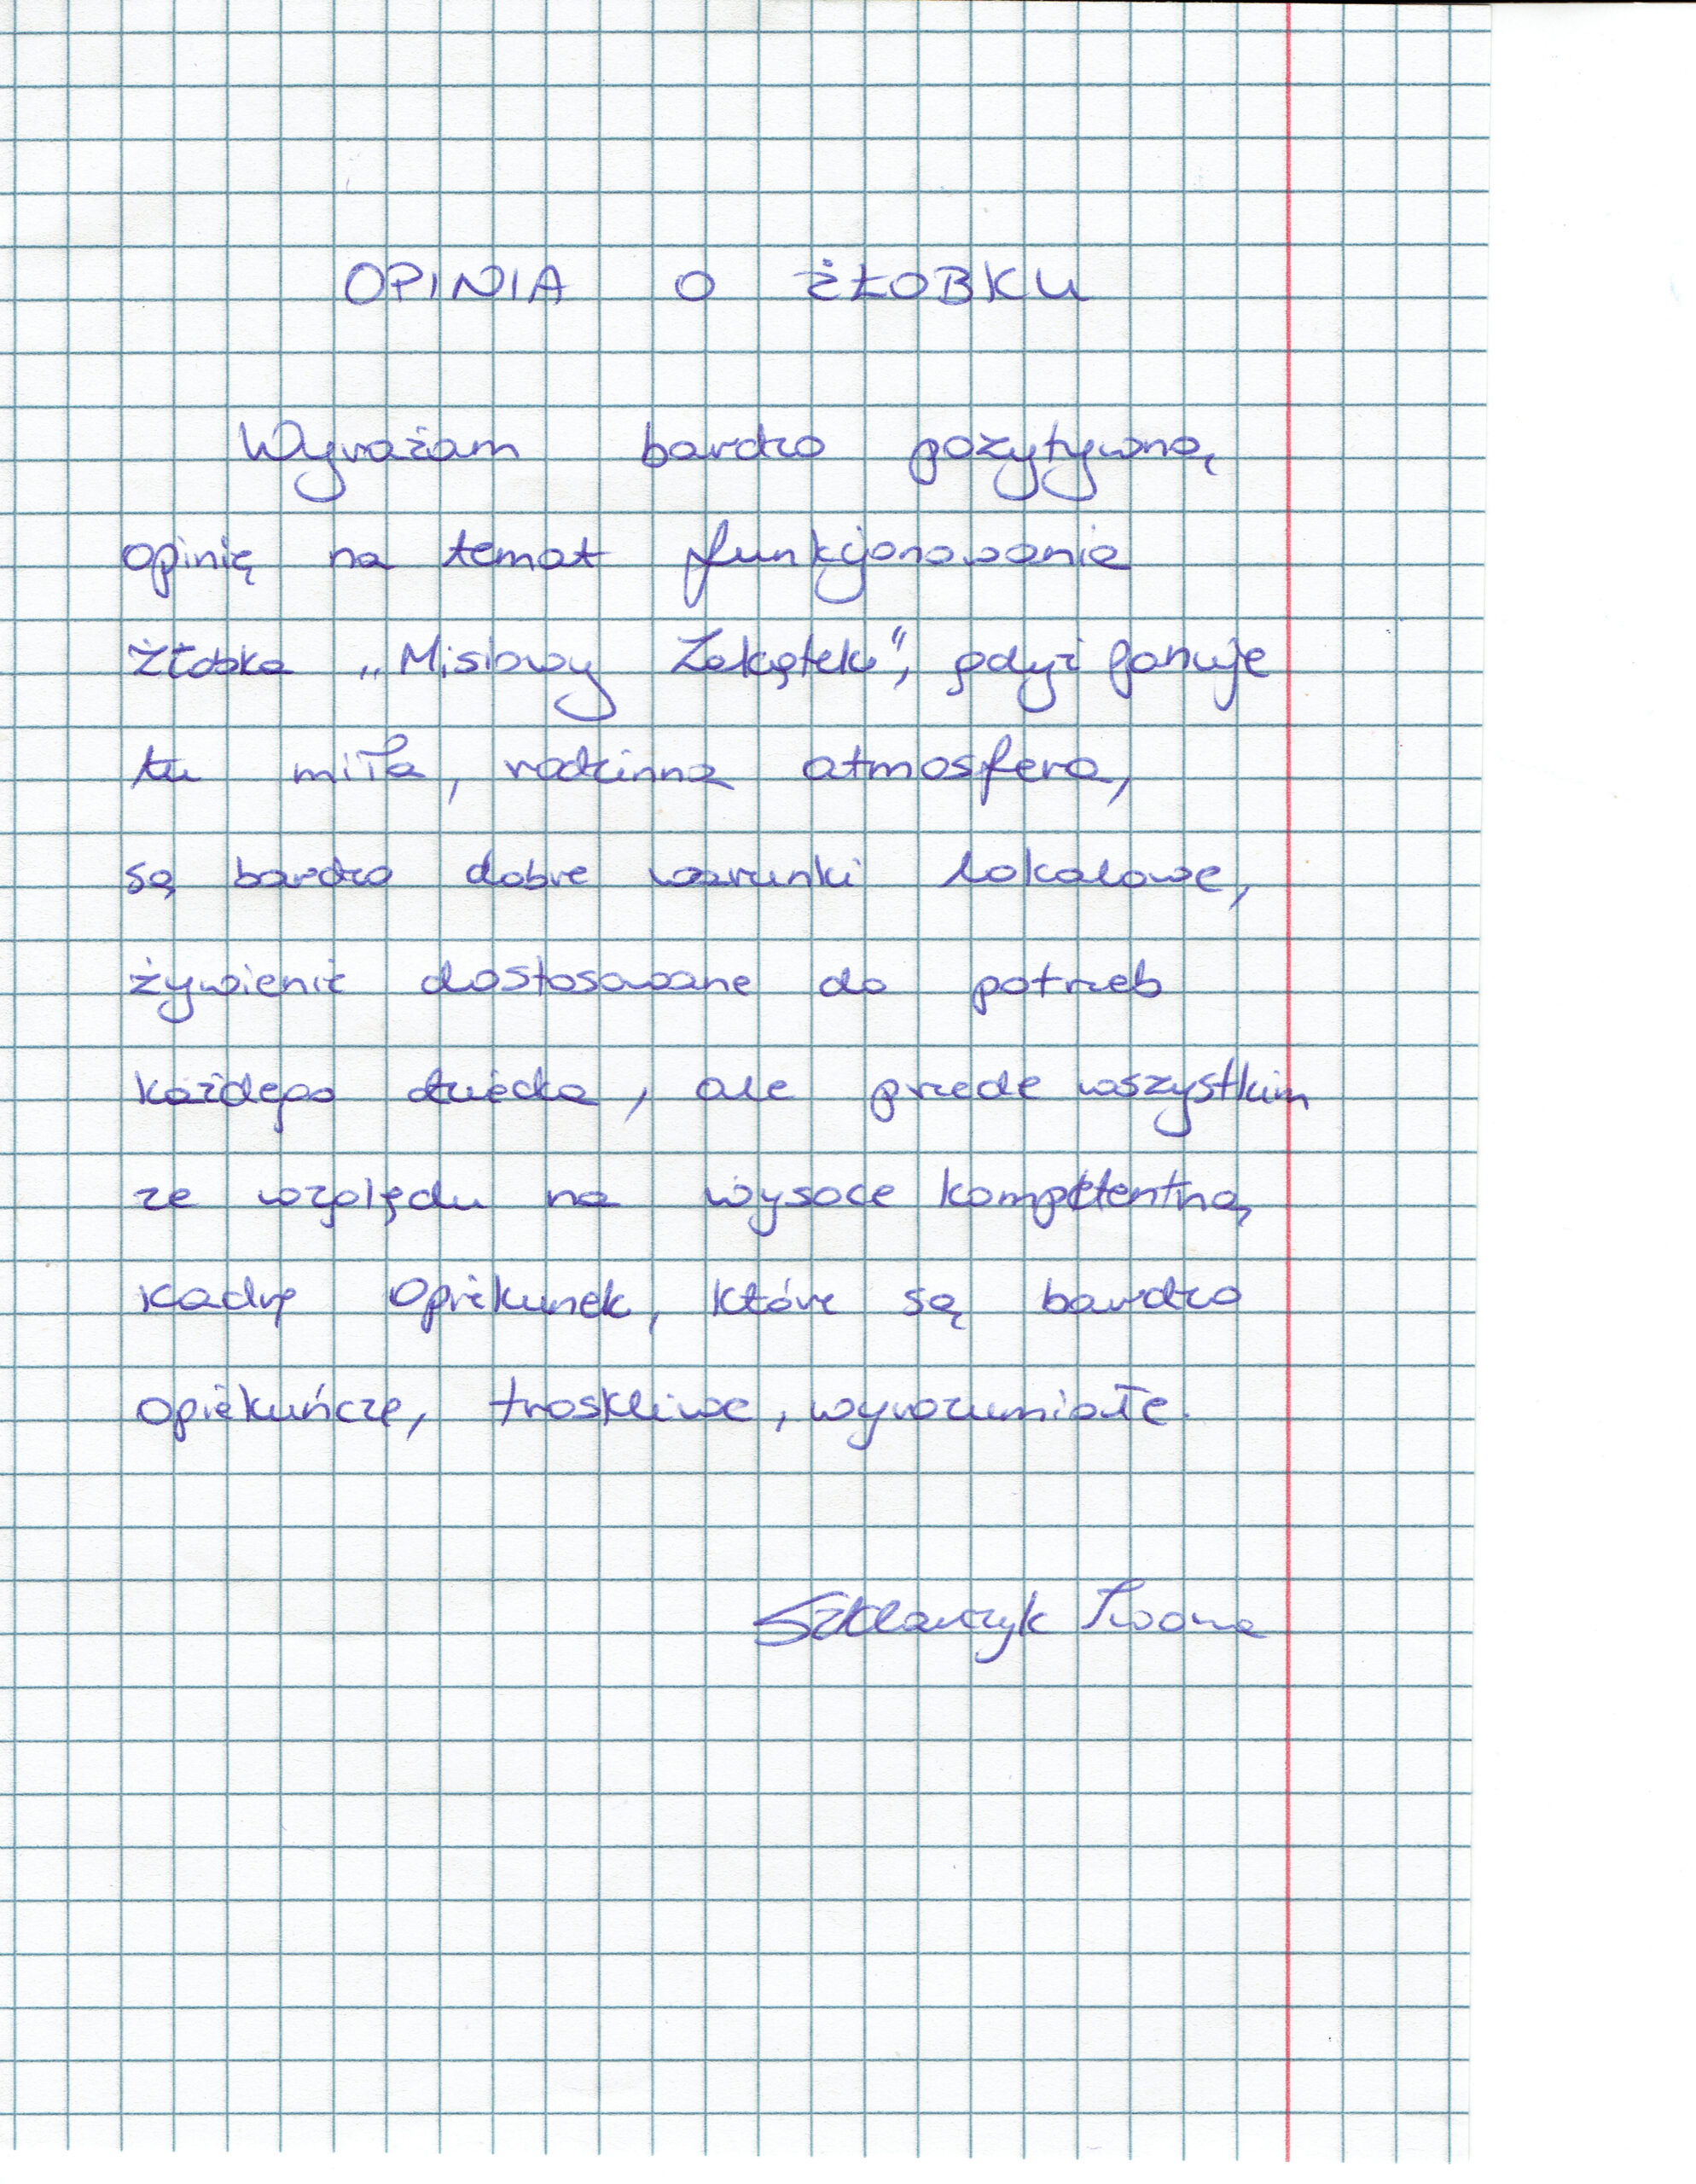 OPINIA O ŻŁOBKU
Wyrażam bardzo pozytywną
opinię na temat funkcjonowania
żłobka „Misiowy Zakątek”, gdyż panuje
tu miła, rodzinna atmosfera,
są bardzo dobre warunki lokalowe,
żywienie dostosowane do potrzeb
każdego dziecka, ale przede wszystkim
ze względu na wysoce kompetentną
kadrę opiekunek, które są bardzo
opiekuńcze, troskliwe, wyrozumiałe.
Szklarczyk Iwona